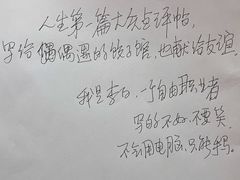 人生第一篇大众点评帖,
写给偶偶遇的饺子馆,也献给友谊
我是李白,一个自由职业者
写的不好,不要笑
不会用电脑,只能手写。